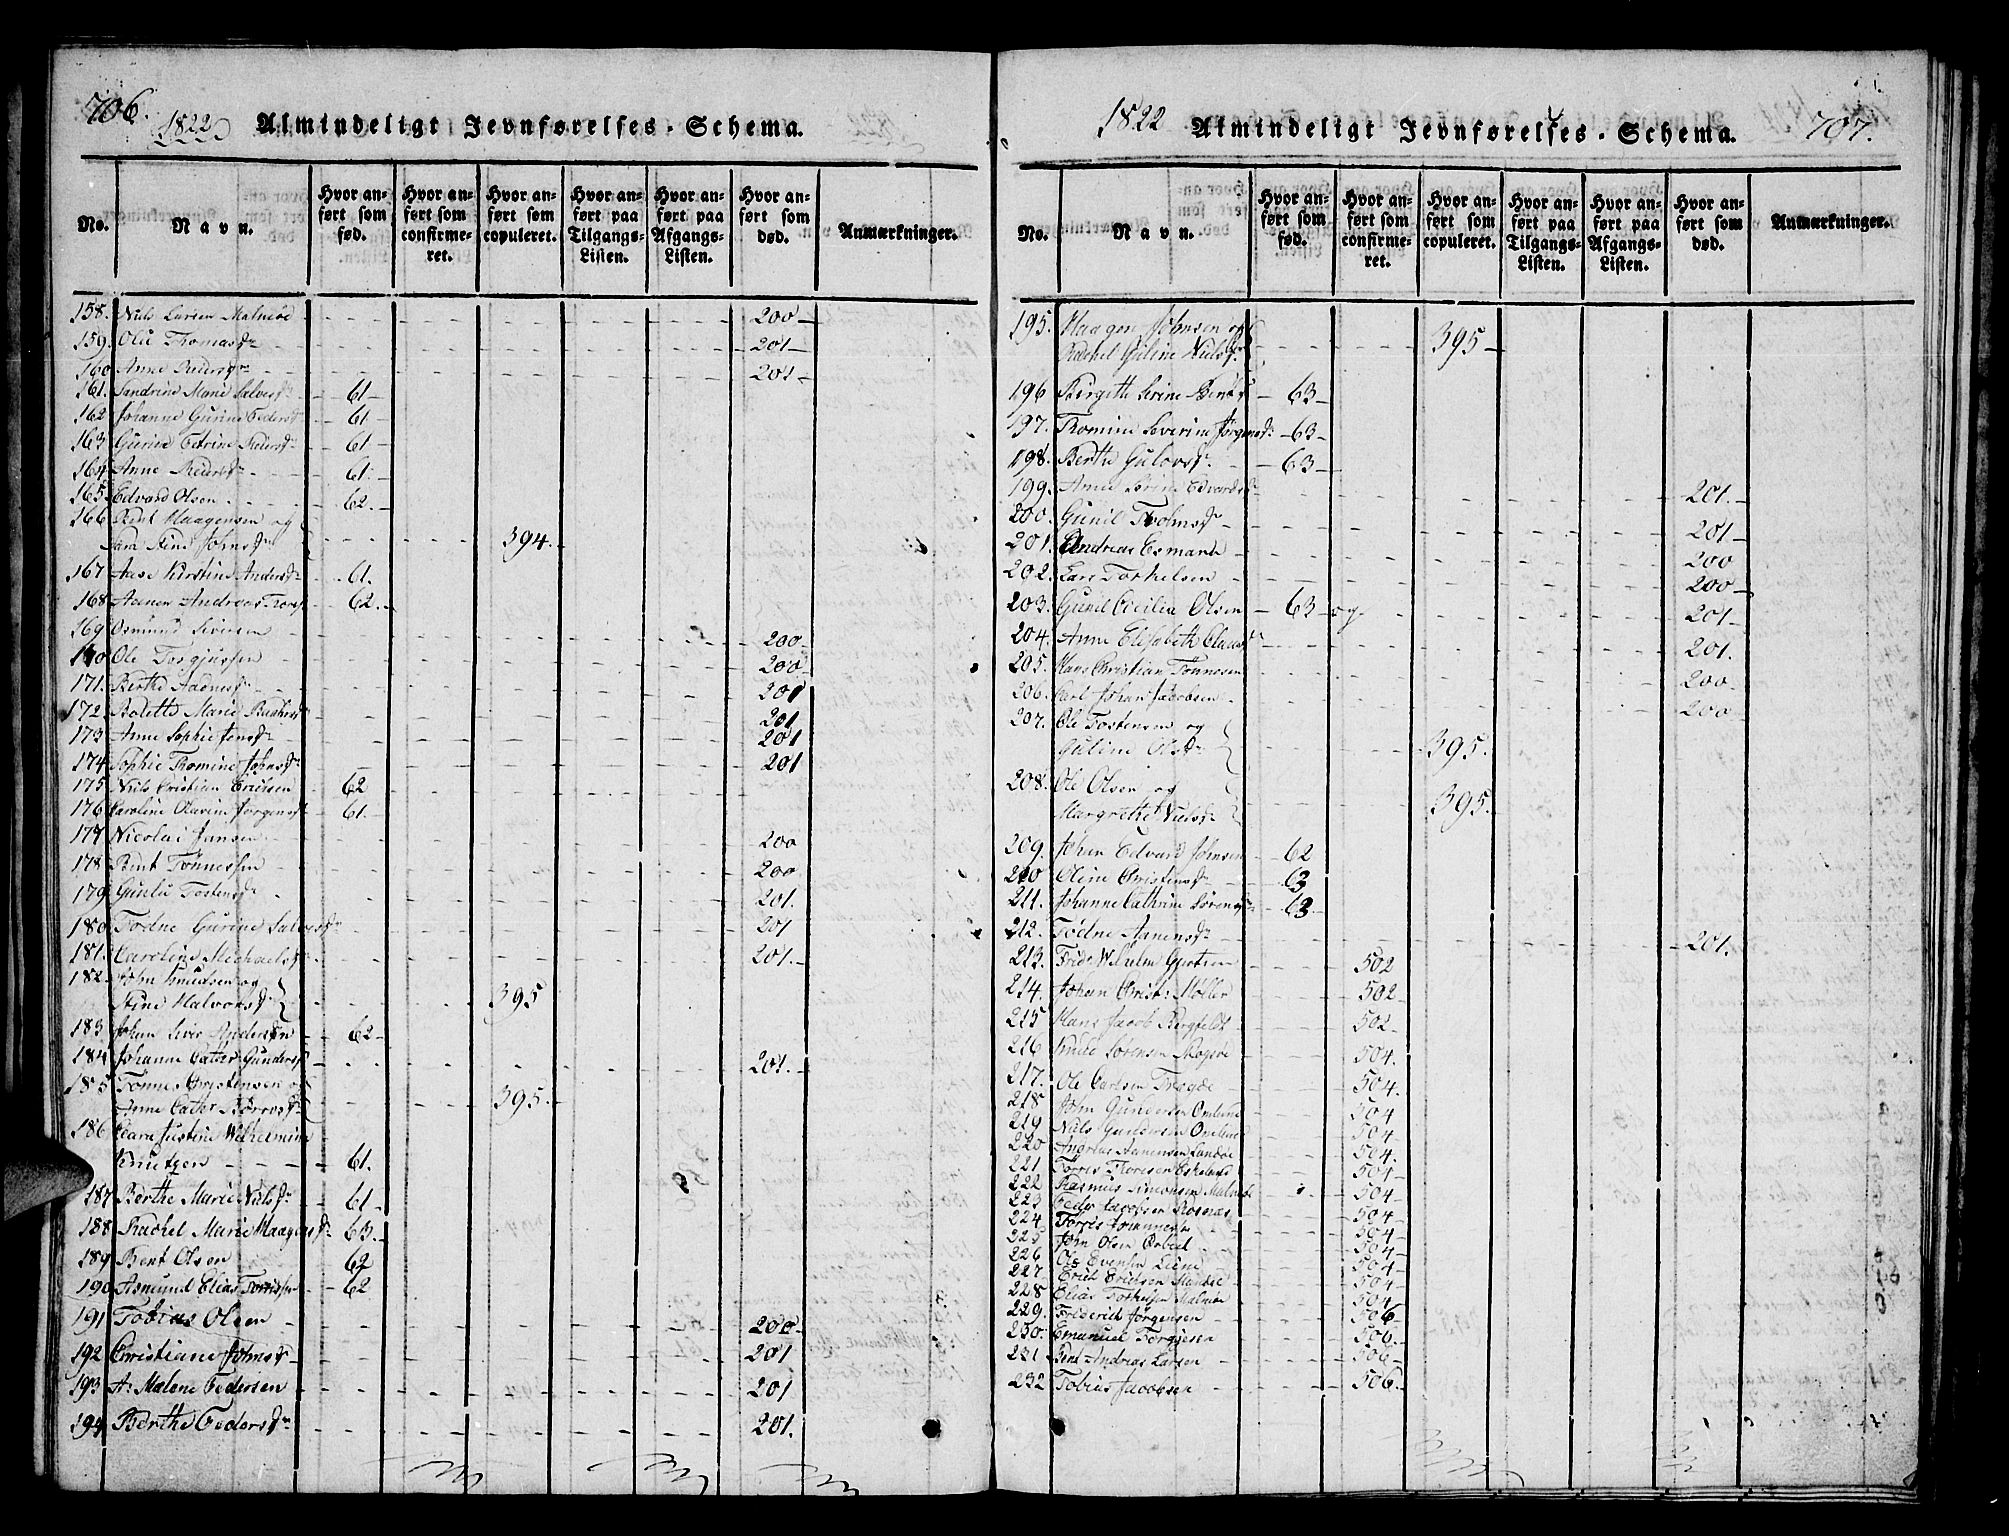 706.
1822
Almindeligt Jevnførelses-Schema.
No.
Navn.
Hvor anført som fød.
Hvor anført som confirmeret.
Hvor anført som copuleret.
Hvor anført paa Tilgangs-Listen.
Hvor anført paa Afgangs-Listen.
Hvor anført som død.
Anmærkninger.
158. Niels Larsen Malmøe 200
159. Olu Thomasd. 201
160 Anne Pedersd. 201
161. Sandrine Marie Salvesd. 61
162 Johanne Gurine Pedersd. 61
163 Gurine Petrine Pedersd. 61
164 Anne Pedersd. 61.
165. Edvard Olsen 62.
166 Bent Haagensen og
Sara Stine Johnsd. 394.
167 Aase Kirstine Andersd. 61.
168 Aanen Andreas 62.
169 Osmund Siversen 200
170 Ole Torgjussen 200
171. Berthe Aadnesd. 201
172. Bolette Marie 201
173 Anne Sophie Jensd. 201
174 Sophie Thomine Johnsd. 201
175 Niels Cristian Ericksen 62
176 Caroline Olavine Jørgensd. 61.
177 Nicolai Jansen 200
178 Bent Tønnessen 200
179 Gunlu Tostensd. 201.
180 Todne Gurine Salvesd. 201
181. Caroline Michaelsd. 201.
182. John Knudsen og
Stine Halvorsd. 395
183 Johan Siver Andersen 62
184 Johanne Cathr. Gundersd. 201.
185 Tønnes Christensen og
Anne Cathr 395.
186 Clara Justine Wilhelmine
Knutzen 61.
187 Berthe Marie Nielsd. 61.
188 Rachel Marie Haagensd. 63.
189 Bent Olsen 62
190 Asmund Elias Torrissen 62
191 Tobias Olsen 200
192 Christiane Johnsd. 201
193 A: Malene Pedersen 201
194 Berthe Pedersd. 201.
1822
Almindeligt Jevnførelses-Schema.
707.
No.
Navn.
Hvor anført som fød.
Hvor anført som confirmeret.
Hvor anført som copuleret.
Hvor anført paa Tilgangs-Listen.
Hvor anført paa Afgangs-Listen.
Hvor anført som død.
Anmærkninger.
195. Haagen Johnsen og
Rachel Guline Nielsd. 395
196 Birgitte Serine 63
197. Thomine Severine Jørgensd. 63
198. Berthe Gulovsd. 63
199. Anne Serine Edvardsd. 201.
200. Gunil Tholmsd. 201
201. Andreas Esmark 200
202. Lars Torkelsen 200
203. Gunil Cecilia Olsen 63 og 201
204. Anne Elisabeth 201.
205. Hans Christian Tønnesen 200
206. Carl Johan Jacobsen 200
207. Ole Tostensen og
Guline Olsd. 395.
208. Ole Olsen og
Margrethe Nielsd. 395.
209. Johan Edvard Johnsen 62
210 Oline Christensd. 63
211. Johanne Cathrine Sørensd. 63
212. Todne Aanensd. 201.
213. Fridr. Wilhelm 502
214. Johan Christ: Møller 502
215 Hans Jacob Bergfeldt 502
216 Knud Sørensen 504.
217. Ole Carlsen 504.
218 John Gundersen Omlund 504
219 Niels Gundersen Omlund 504
220 Andreas Aanensen Sandøe 504.
221 Torres Thorsen Eskeland 504
222 Rasmus Simonsen Malmøe 504
223 Peder Jacobsen Rosnæs 504
224 Torris 504
225 John Olsen 504
226 Ole Evensen 504
227 Erich Erichsen 504
228 Elias Torkelsen Malmøe 504
229. Friderich Jørgensen 506
230. Emanuel Torgjusen 506
231 Bent Andreas Larsen 506
232 Tobias Jacobsen 506.